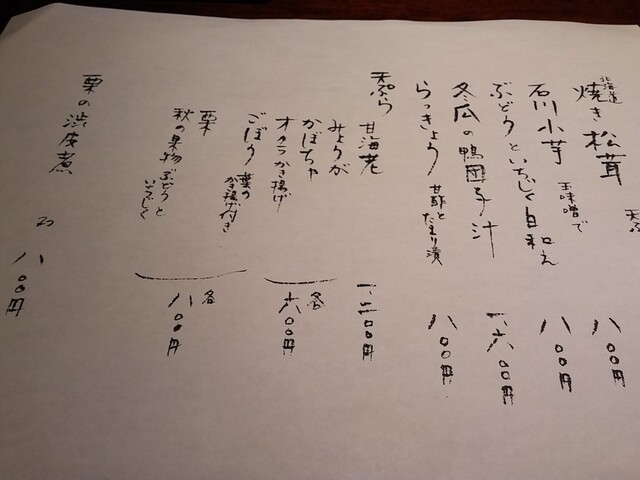 天ぷ
北海道
焼き松茸
石川小芋 玉味噌で 八〇〇円
ぶどうといちじく白和え 八〇〇円
冬瓜の鴨団子汁 一、六〇〇円
らっきょう 甘酢とたまり漬 八〇〇円
天ぷら 甘海老 一、二〇〇円
みょうが
かぼちゃ
オクラかき揚げ
各六〇〇円
ごぼう 葉のかき揚げ付き
栗
秋の果物 ぶどうといちじく
各八〇〇円
栗の渋皮煮 2コ 八〇〇円